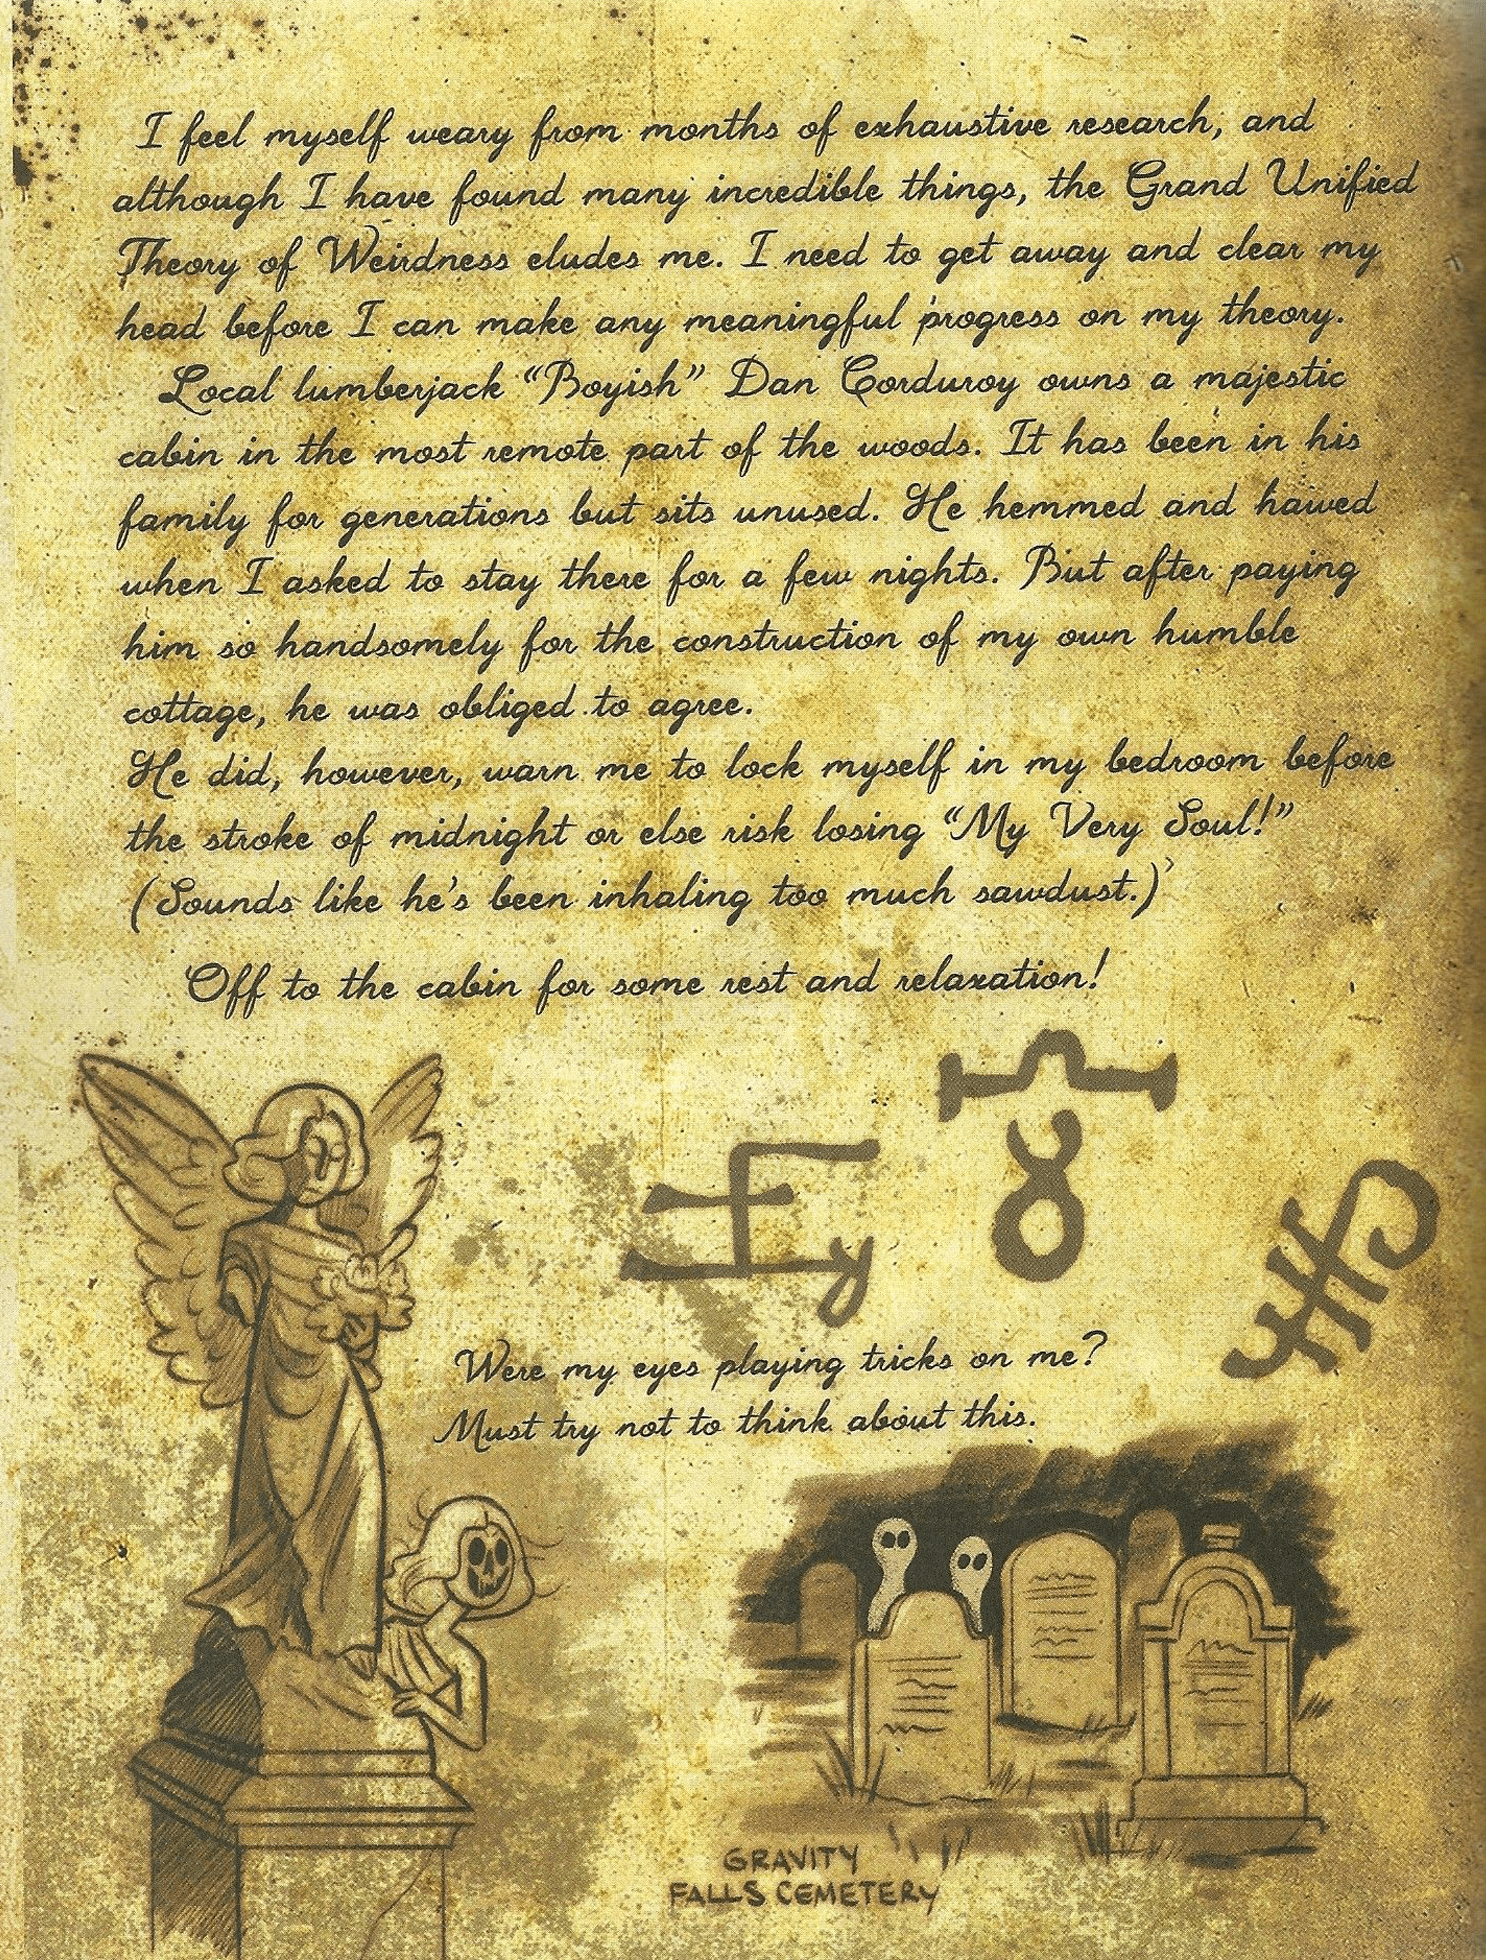 I feel myself weary from months of exhaustive research, and
although I have found many incredible things, the Grand Unified
Theory of Weirdness eludes me. I need to get away and clear my
head before I can make any meaningful progress on my theory.
Local lumberjack “Boyish” Dan Corduroy owns a majestic
cabin in the most remote part of the woods. It has been in his
family for generations but sits unused. He hemmed and hawed
when I asked to stay there for a few nights. But after paying
him so handsomely for the construction of my own humble
cottage, he was obliged to agree.
He did, however, warn me to lock myself in my bedroom before
the stroke of midnight or else risk losing “My Very Soul!”
(Sounds like he's been inhaling too much sawdust.)
Off to the cabin for some rest and relaxation!
Were my eyes playing tricks on me?
Must try not to think about this.
GRAVITY
FALLS CEMETERY